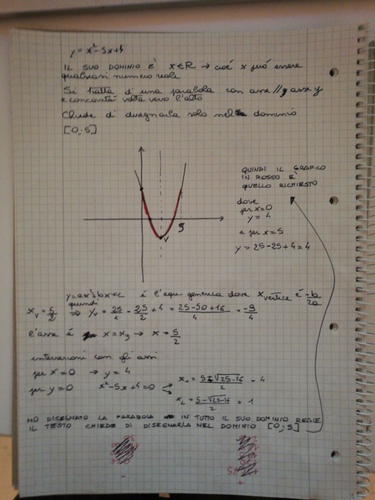 y = x² - 5x + 4
IL SUO DOMINIO È x∈R → cioè x può essere
qualsiasi numero reale
Si tratta di una parabola con asse // asse y
e concavità volta verso l'alto
Chiede di disegnarla solo nel dominio
[0; 5]
QUINDI IL GRAFICO
IN ROSSO È
QUELLO RICHIESTO
dove
per x=0
y = 4
e per x=5
y = 25-25+4 = 4
5
V
y=ax²+bx+c è l'equ generica dove x vertice è -b/2a
quindi
xᵥ = 5/2 ⇒ yᵥ = 25/4 - 25/2 + 4 = 25-50+16/4 = -9/4
l'asse è x = xᵥ → x = 5/2
intersezioni con gli assi
per x=0 → y=4
per y=0 x²-5x+4=0 x₁ = 5+√25-16/2 = 4
x₂ = 5-√25-16/2 = 1
HO DISEGNATO LA PARABOLA IN TUTTO IL SUO DOMINIO
IL TESTO CHIEDE DI DISEGNARLA NEL DOMINIO [0; 5]